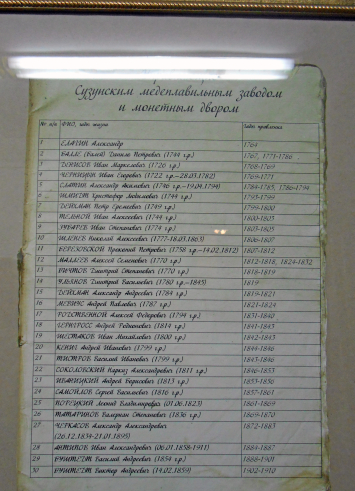 Сузунским медеплавильным заводом
и монетным двором
№ п/п ФИО, годы жизни Годы правления
1 ЕЛАГИН Александр 1764
2 Даниил Петрович (1744 г.р.) 1767, 1771-1786
3 ДЕНИСОВ Иван (1726 г.р.) 1768-1769
4 ЧЕРНИЦИН Иван (1722 г.р.-28.03.1782) 1769-1771
5 Александр Акимович (1746 г.р.-19.04.1794) 1784-1785, 1786-1794
6 Христофор (1745 г.р.) 1795-1799
7 ДЕЙХМАН Петр Еремеевич (1749 г.р.) 1799-1800
8 Иван Алексеевич (1744 г.р.) 1800-1803
9 ЗУБАРЕВ Иван Степанович (1774 г.р.) 1803-1805
10 Николай Алексеевич (1777-18.03.1863) 1806-1807
11 БЕРЕЗОВСКИЙ Прокопий Петрович (1758 г.р.-14.02.1812) 1807-1812
12 Алексей Семенович (1770 г.р.) 1812-1818, 1824-1832
13 Дмитрий Степанович (1770 г.р.) 1818-1819
14 УЛЬЯНОВ Дмитрий Васильевич (1780 г.р.-1845) 1819
15 ДЕЙХМАН Александр Андреевич (1784 г.р.) 1819-1821
16 Андрей Павлович (1787 г.р.) 1821-1824
17 РОДСТВЕННОЙ Алексей Федорович (1794 г.р.) 1831-1840
18 ЧЕРКАСОВ Андрей Родионович (1814 г.р.) 1841-1843
19 ШЕСТАКОВ Иван Михайлович (1800 г.р.) 1842-1843
20 Андрей Иванович (1799 г.р.) 1844-1846
21 Василий Иванович (1799 г.р.) 1843-1846
22 СОКОЛОВСКИЙ Александрович (1811 г.р.) 1846-1853
23 ИВАНИЦКИЙ Андрей Борисович (1813 г.р.) 1853-1856
24 САМОЙЛОВ Сергей Васильевич (1816 г.р.) 1857-1861
25 КОРЕЦКИЙ Леонид Владимирович (01.06.1823) 1861-1869
26 ТАТАРИНОВ Валериан Степанович (1836 г.р.) 1869-1870
27 ЧЕРКАСОВ Александр Александрович 1872-1883
(26.12.1834-21.01.1895)
28 АНТИПОВ Иван Александрович (06.01.1838-1911) 1884-1887
29 Василий Андреевич (1854 г.р.) 1888-1901
30 Виктор Андреевич (14.02.1859) 1902-1910